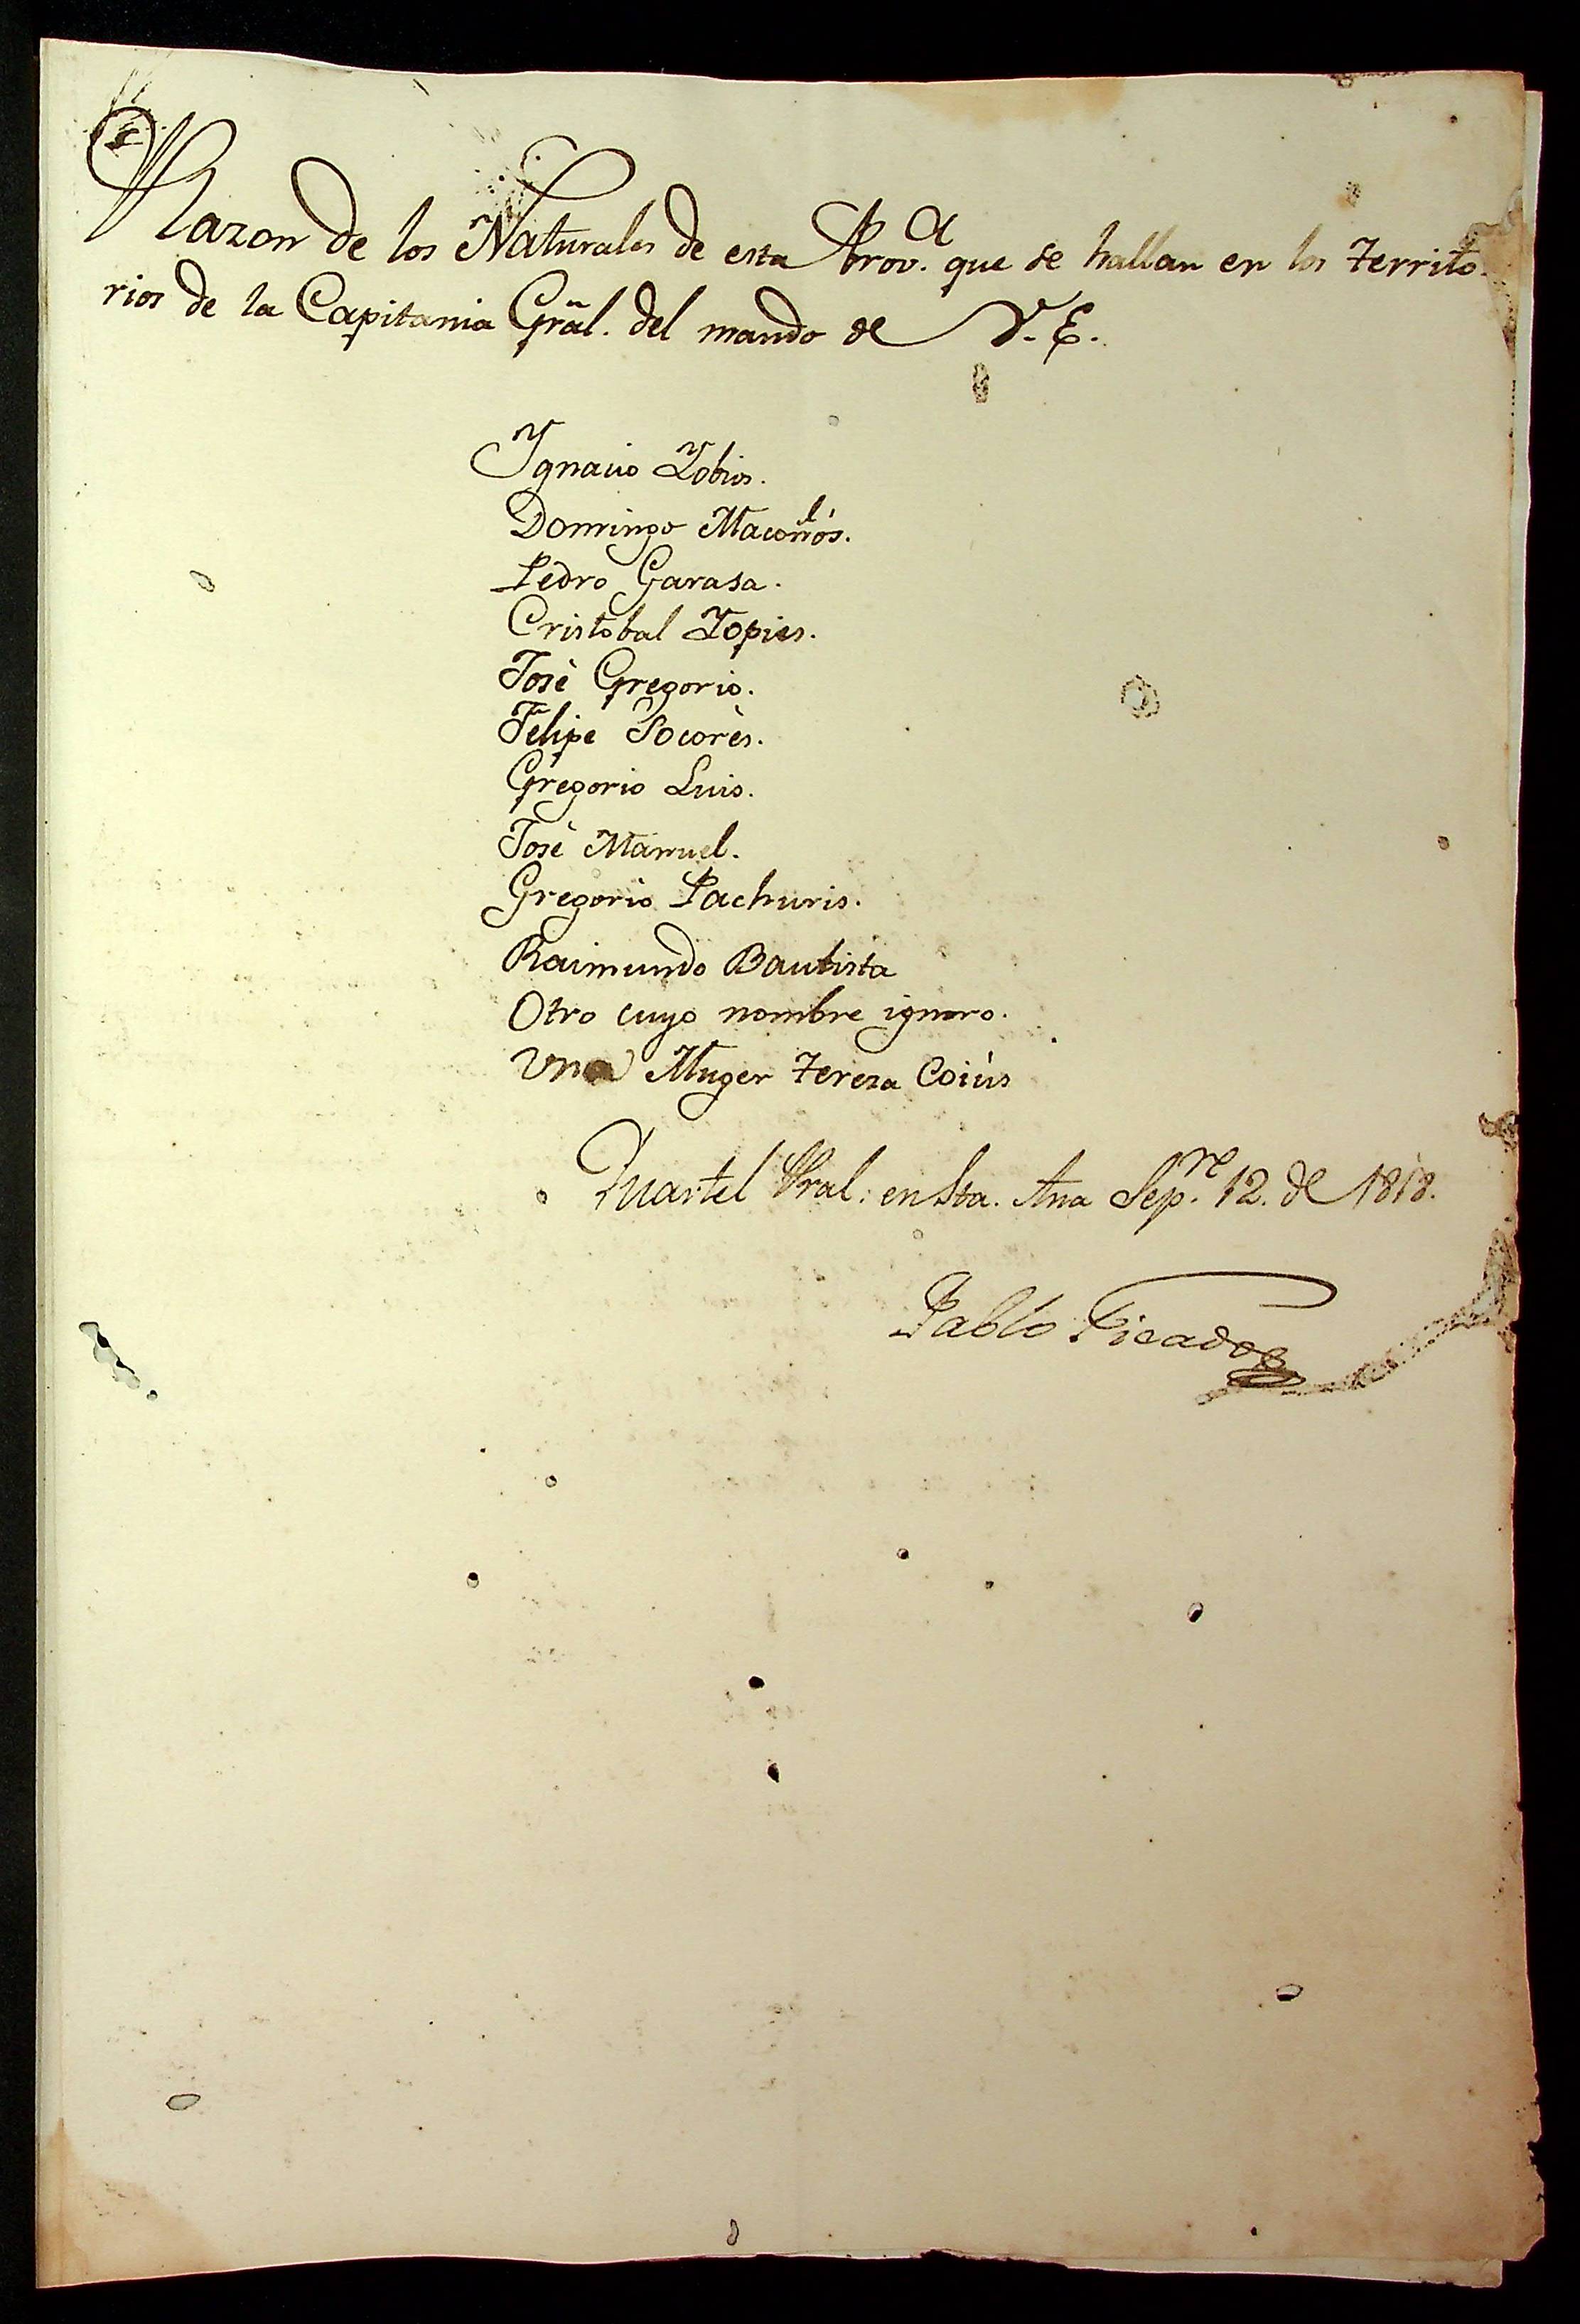 Razon de los Naturales de esta Prov.ª que se hallan en los Territo
rios de la Capitania Grãl. del mando de V. E.
Ygnacio Yobios.
Domingo
Pedro Garasa.
Cristobal Yopies.
José Gregorio.
Felipe Socorès.
Gregorio Luis.
José Manuel.
Gregorio Pachuris.
Raimundo Bautista
Otro cuyo nombre ignoro.
Una Muger Tereza Coiús
Quartel Gral: en Sta. Ana Sep.re 12. de 1818.
Pablo Picado